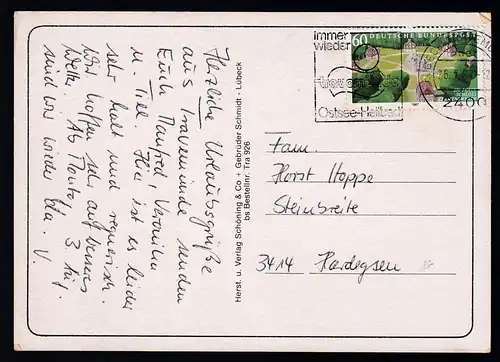 Herzliche Urlaubsgrüße
aus Travemünde senden
Euch Manfred, Veronika
u. Hier ist es leider
sehr kalt und regnerisch.
Wir hoffen sehr auf besseres
Wetter. Ab Montag 3 Juli
sind wir wieder da. V.
Herst. u. Verlag Schöning & Co + Gebrüder Schmidt · Lübeck
bs Bestellnr. Tra 926
immer
wieder
travemünde
Ostsee-Heilbad
60 DEUTSCHE BUNDESPOST
2400
Fam.
Horst Hoppe
Steinbreite
3414 Hardegsen